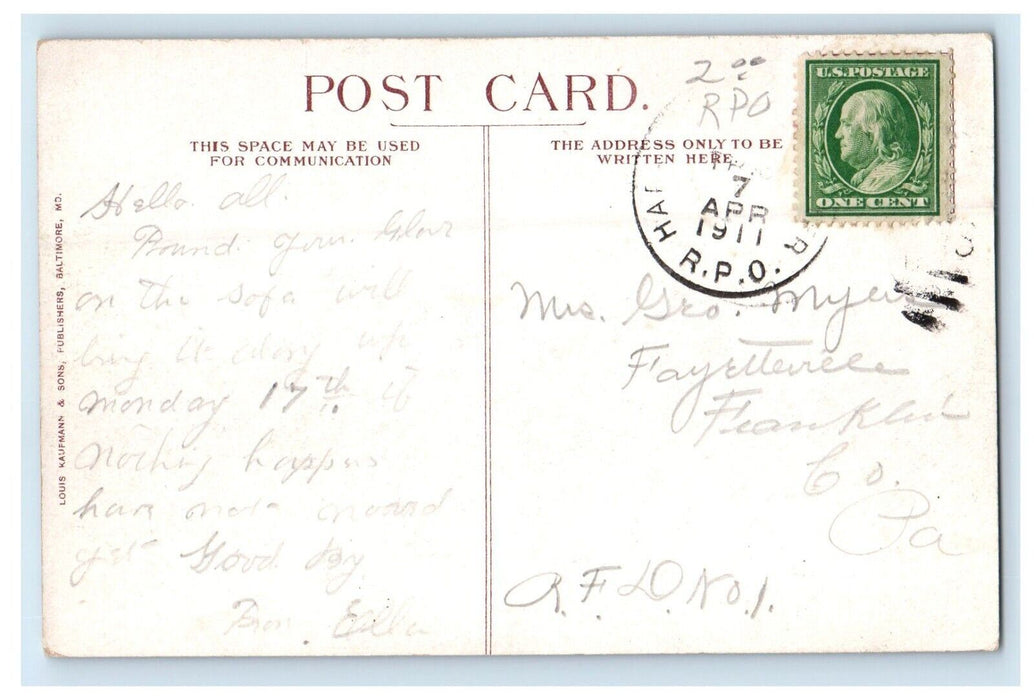 POST CARD.
THIS SPACE MAY BE USED
FOR COMMUNICATION
THE ADDRESS ONLY TO BE
WRITTEN HERE.
LOUIS KAUFMANN & SONS, PUBLISHERS, BALTIMORE, MD.
2.00
RPO
U.S. POSTAGE
ONE CENT
7
APR
1911
R.P.O.
Hello. all.
Found your
on the sofa will
up
monday 17th if
Nothing happens
have not moved
yet Good By
From Ella
Mrs. Geo. Myers
Fayetteville
Franklin
Co.
Pa
R.F.D. No. 1.